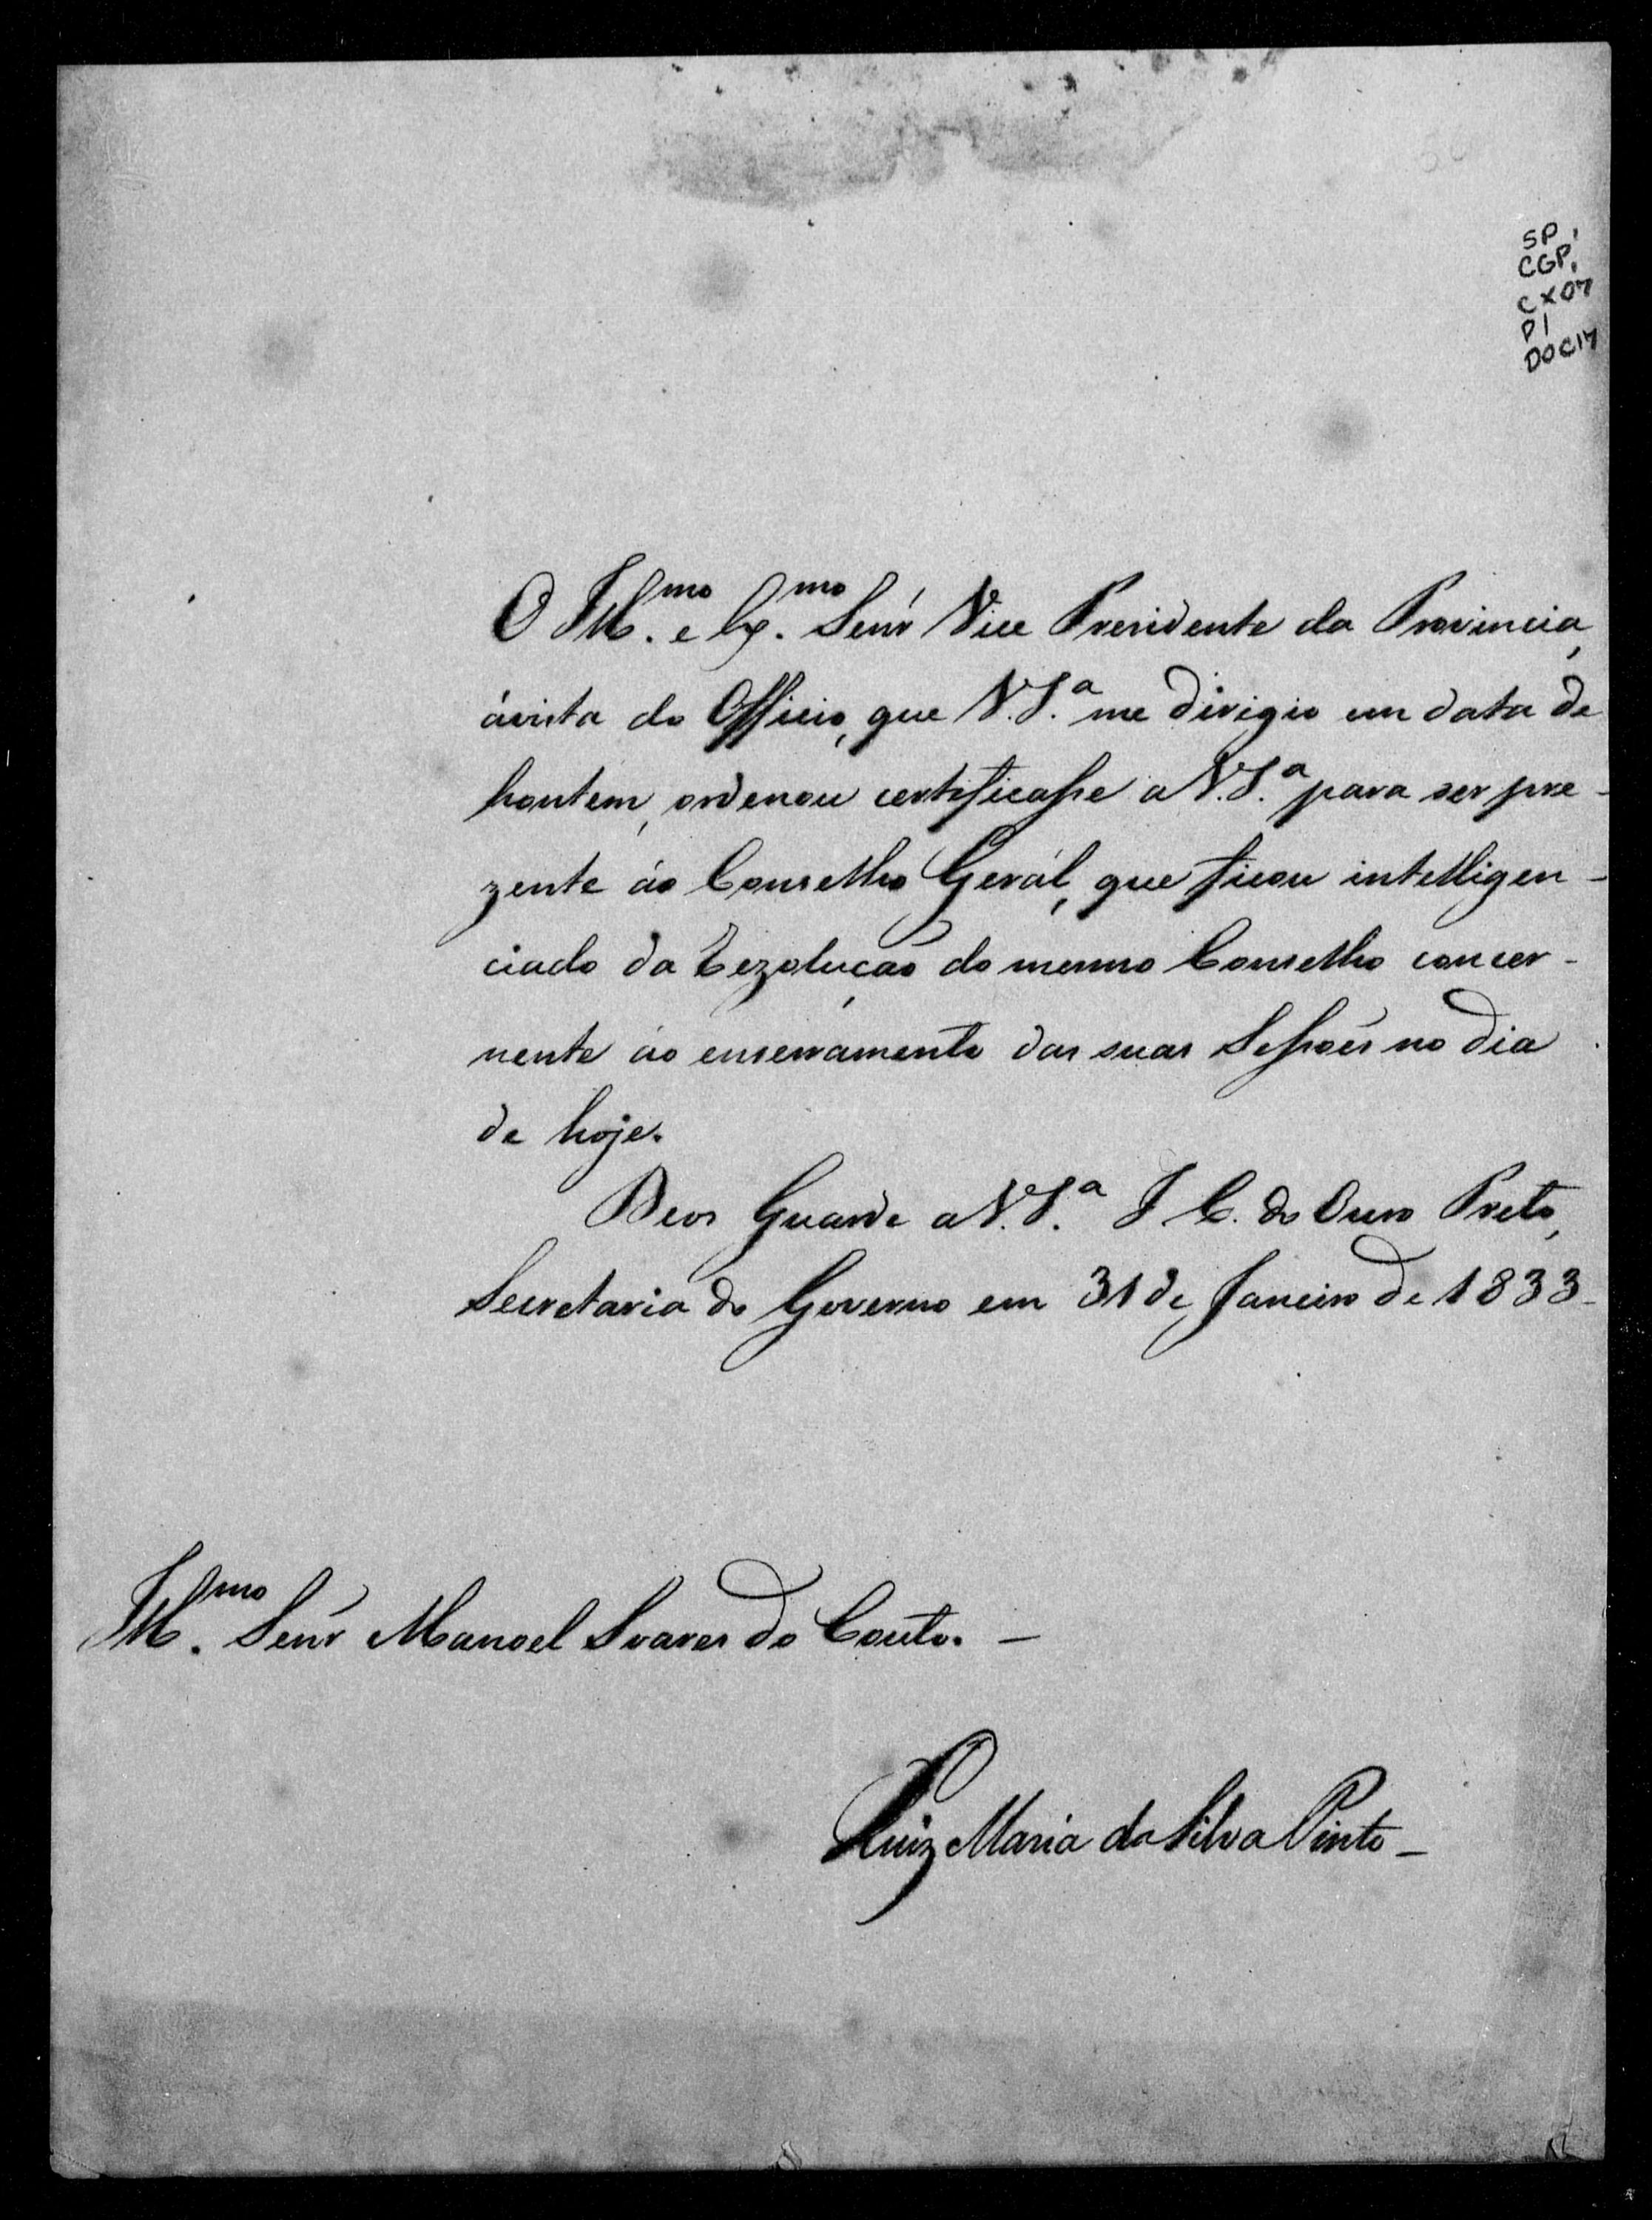 SP,
CGP,
CX07
P1
DOC17
O Ill.mo e Ex.mo Senr Vice Presidente da Provincia,
ávista do Officio, que V.S.a me dirigio em data de
hontem, ordenou certificasse a V.S.a para ser pre-
zente áo Conselho Gerál, que ficou intelligen-
ciado da Rezolução do mesmo Conselho concer-
nente áo encerramento das suas Sessoẽs no dia
de hoje.
Deos Guarde a V.S.a I C. do Ouro Preto,
Secretaria do Governo em 31 de Janeiro de 1833_
Ill.mo Senr Manoel Soares do Couto. _
Luiz Maria da Silva Pinto _